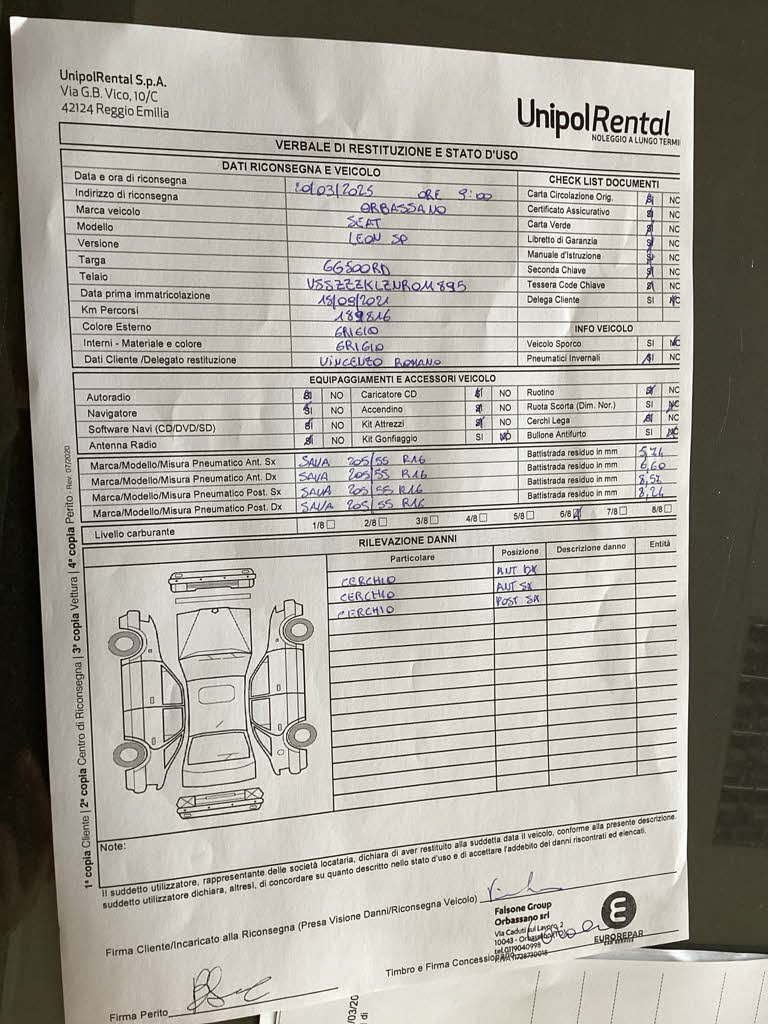 UnipolRental S.p.A.
Via G.B. Vico, 10/C
42124 Reggio Emilia
UnipolRental
NOLEGGIO A LUNGO TERMI
VERBALE DI RESTITUZIONE E STATO D'USO
DATI RICONSEGNA E VEICOLO
Data e ora di riconsegna 20/03/2025 ORE 9:00
Indirizzo di riconsegna ORBASSANO
Marca veicolo SEAT
Modello LEON SP
Versione
Targa GG500RD
Telaio VSSZZZKLZNR011895
Data prima immatricolazione 15/09/2021
Km Percorsi 189816
Colore Esterno GRIGIO
Interni - Materiale e colore GRIGIO
Dati Cliente /Delegato restituzione VINCENZO ROMANO
CHECK LIST DOCUMENTI
Carta Circolazione Orig. SI NO
Certificato Assicurativo SI NO
Carta Verde SI NO
Libretto di Garanzia SI NO
Manuale d'Istruzione SI NO
Seconda Chiave SI NO
Tessera Code Chiave SI NO
Delega Cliente SI NO
INFO VEICOLO
Veicolo Sporco SI NO
Pneumatici Invernali SI NO
EQUIPAGGIAMENTI E ACCESSORI VEICOLO
Autoradio SI NO Caricatore CD SI NO Ruotino SI NO
Navigatore SI NO Accendino SI NO Ruota Scorta (Dim. Nor.) SI NO
Software Navi (CD/DVD/SD) SI NO Kit Attrezzi SI NO Cerchi Lega SI NO
Antenna Radio SI NO Kit Gonfiaggio SI NO Bullone Antifurto SI NO
Marca/Modello/Misura Pneumatico Ant. Sx SAVA 205/55 R16 Battistrada residuo in mm 5,74
Marca/Modello/Misura Pneumatico Ant. Dx SAVA 205/55 R16 Battistrada residuo in mm 6,60
Marca/Modello/Misura Pneumatico Post. Sx SAVA 205/55 R16 Battistrada residuo in mm 8,52
Marca/Modello/Misura Pneumatico Post. Dx SAVA 205/55 R16 Battistrada residuo in mm 8,24
Livello carburante 1/8 2/8 3/8 4/8 5/8 6/8 7/8 8/8
RILEVAZIONE DANNI
Particolare Posizione Descrizione danno Entità
CERCHIO ANT DX
CERCHIO ANT SX
CERCHIO POST SX
1ª copia Cliente | 2ª copia Centro di Riconsegna | 3ª copia Vettura | 4ª copia Perito - Rev. 07/2020
Note:
Il suddetto utilizzatore, rappresentante delle società locataria, dichiara di aver restituito alla suddetta data il veicolo, conforme alla presente descrizione.
suddetto utilizzatore dichiara, altresì, di concordare su quanto descritto nello stato d'uso e di accettare l'addebito dei danni riscontrati ed elencati.
Firma Cliente/Incaricato alla Riconsegna (Presa Visione Danni/Riconsegna Veicolo)
Falsone Group
Orbassano srl
Via Caduti sul Lavoro, 2
10043 - Orbassano
tel.0119040995
EUROREPAR
Timbro e Firma Concessio
Firma Perito
/03/20